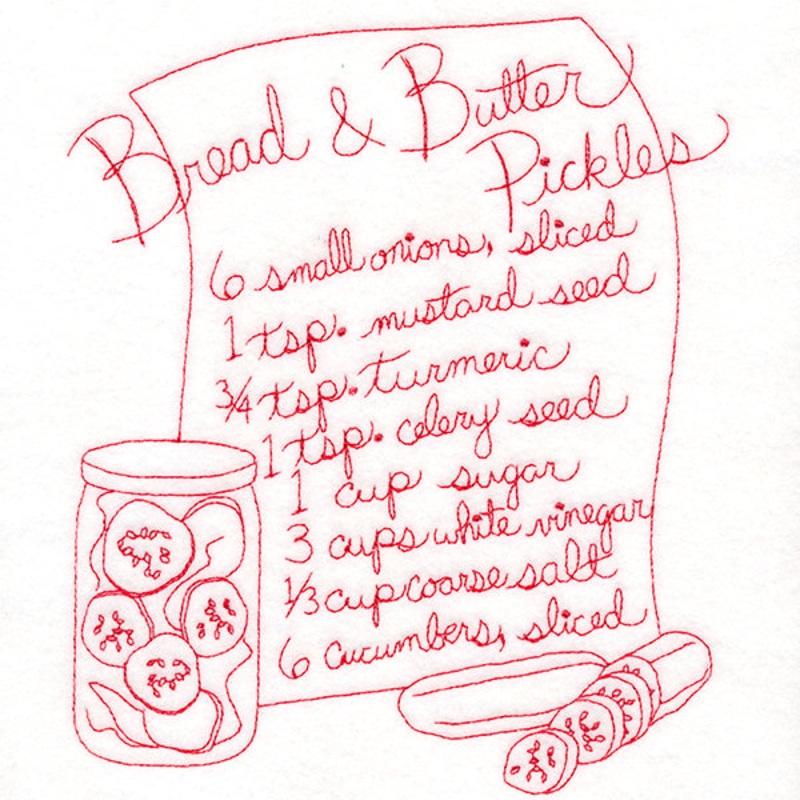 Bread & Butter
Pickles
6 small onions, sliced
1 tsp. mustard seed
3/4 tsp. turmeric
1 tsp. celery seed
1 cup sugar
3 cups white vinegar
1/3 cup coarse salt
6 cucumbers, sliced